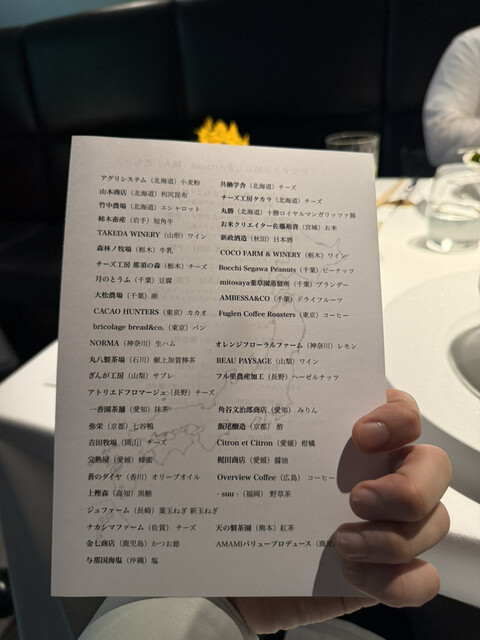 アグリシステム（北海道）小麦粉
山本商店（北海道）利尻昆布
竹中農場（北海道）エシャロット
柿木畜産（岩手）短角牛
TAKEDA WINERY（山形）ワイン
森林ノ牧場（栃木）牛乳
チーズ工房 那須の森（栃木）チーズ
月のとうふ（千葉）豆腐
大松農場（千葉）卵
CACAO HUNTERS（東京）カカオ
bricolage bread&co.（東京）パン
NORMA（神奈川）生ハム
丸八製茶場（石川）献上加賀棒茶
ぎんが工房（山梨）サブレ
アトリエドフロマージュ（長野）チーズ
一香園茶舗（愛知）抹茶
弥栄（京都）七谷鴨
吉田牧場（岡山）チーズ
完熟屋（愛媛）蜂蜜
蒼のダイヤ（香川）オリーブオイル
上樫森（高知）黒糖
ジュファーム（長崎）葉玉ねぎ 新玉ねぎ
ナカシマファーム（佐賀）チーズ
金七商店（鹿児島）かつお節
与那国海塩（沖縄）塩
共働学舎（北海道）チーズ
チーズ工房タカラ（北海道）チーズ
丸勝（北海道）十勝ロイヤルマンガリッツァ豚
お米クリエイター佐藤裕貴（宮城）お米
新政酒造（秋田）日本酒
COCO FARM & WINERY（栃木）ワイン
Bocchi Segawa Peanuts（千葉）ピーナッツ
mitosaya薬草園蒸留所（千葉）ブランデー
AMBESSA&CO（千葉）ドライフルーツ
Fuglen Coffee Roasters（東京）コーヒー
オレンジフローラルファーム（神奈川）レモン
BEAU PAYSAGE（山梨）ワイン
フル里農産加工（長野）ヘーゼルナッツ
角谷文治郎商店（愛知）みりん
飯尾醸造（京都）酢
Citron et Citron（愛媛）柑橘
梶田商店（愛媛）醤油
Overview Coffee（広島）コーヒー
- suu -（福岡）野草茶
天の製茶園（熊本）紅茶
AMAMIバリュープロデュース（鹿児